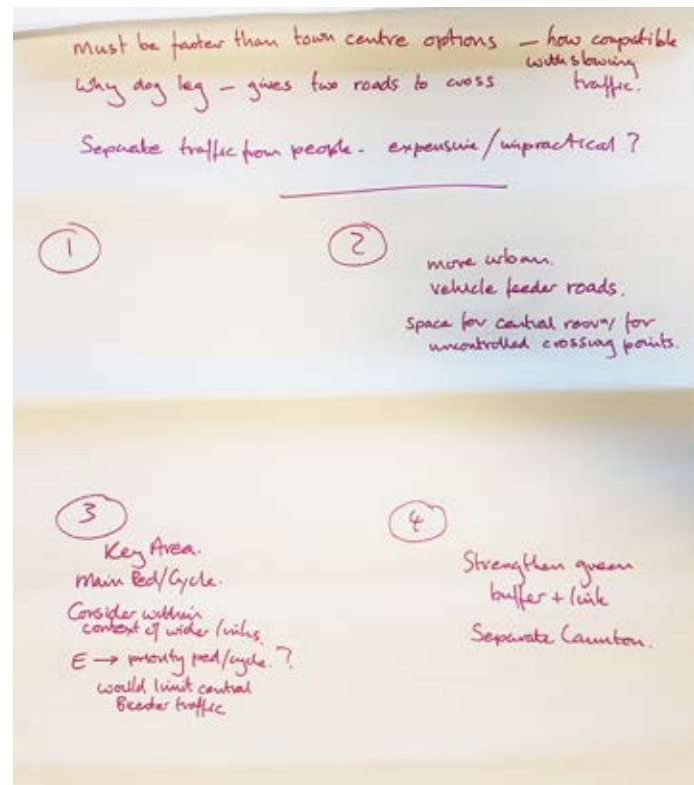 Must be faster than town centre options – how compatible
with slowing
Why dog leg – gives two roads to cross traffic.
Separate traffic from people - expensive/unpractical?
1
2
more urban.
vehicle feeder roads.
space for central for
uncontrolled crossing points.
3
Key Area.
Main Ped/Cycle.
Consider within
context of wider links.
E → priority ped/cycle. ?
would limit central
feeder traffic
4
Strengthen green
buffer + link
Separate